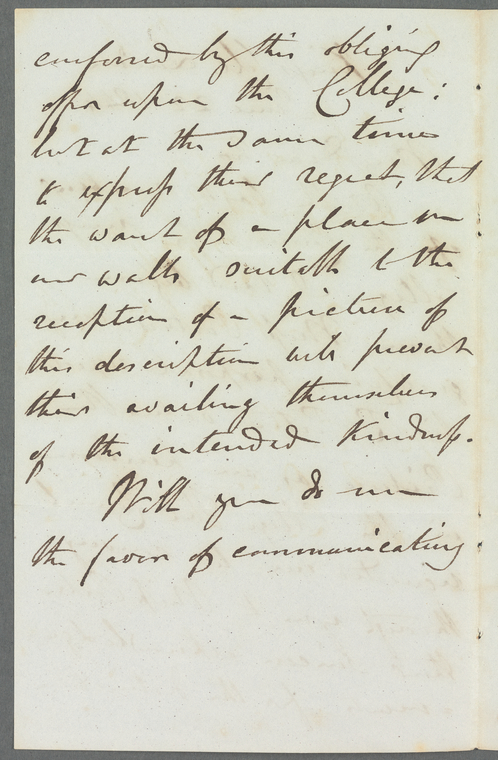 conferred by this obliging
offer upon the College;
but at the same time
to express their regret, that
the want of a place on
our walls suitable to the
reception of a picture of
this description will prevent
their availing themselves
of the intended Kindness.
Will you do me
the favor of communicating